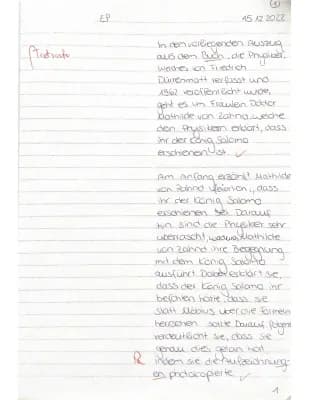 (1)
EP 15.12.2022
In dem vorliegenden Auszug
aus dem Buch „die Physiker",
welches von Friedrich
Dürrenmatt verfasst und
1962 veröffentlicht wurde,
geht es um Fräulein Doktor
Mathilde von Zahnd, welche
den Physikern erklärt, dass
ihr der König Salomo
erschienen ist.
Am Anfang erzählt Mathilde
von Zahnd, dass
ihr der König Salomo
erschienen sei. Darauf
hin sind die Physiker sehr
überrascht, Mathilde
von Zahnd ihre Begegnung
mit dem König Salomo
ausführt. Dabei erklärt sie,
dass der König Salomo ihr
befohlen hätte, dass sie
statt Möbius über die Formeln
herrschen solle. Darauf folgend
verdeutlicht sie, dass sie
genau dies getan hat,
R indem sie die Aufzeichnung-
en photocopierte.
1